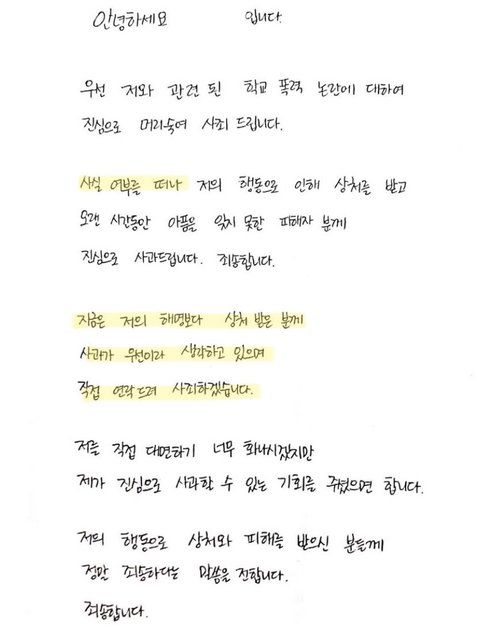 안녕하세요 입니다.
우선 저와 관련 된 학교 폭력 논란에 대하여
진심으로 머리숙여 사죄 드립니다.
사실 여부를 떠나 저의 행동으로 인해 상처를 받고
오랜 시간동안 아픔을 잊지 못한 피해자 분께
진심으로 사과드립니다. 죄송합니다.
지금은 저의 해명보다 상처 받은 분께
사과가 우선이라 생각하고 있으며
직접 연락드려 사죄하겠습니다.
저를 직접 대면하기 너무 화나시겠지만
제가 진심으로 사과할 수 있는 기회를 주셨으면 합니다.
저의 행동으로 상처와 피해를 받으신 분들께
정말 죄송하다는 말씀을 전합니다.
죄송합니다.